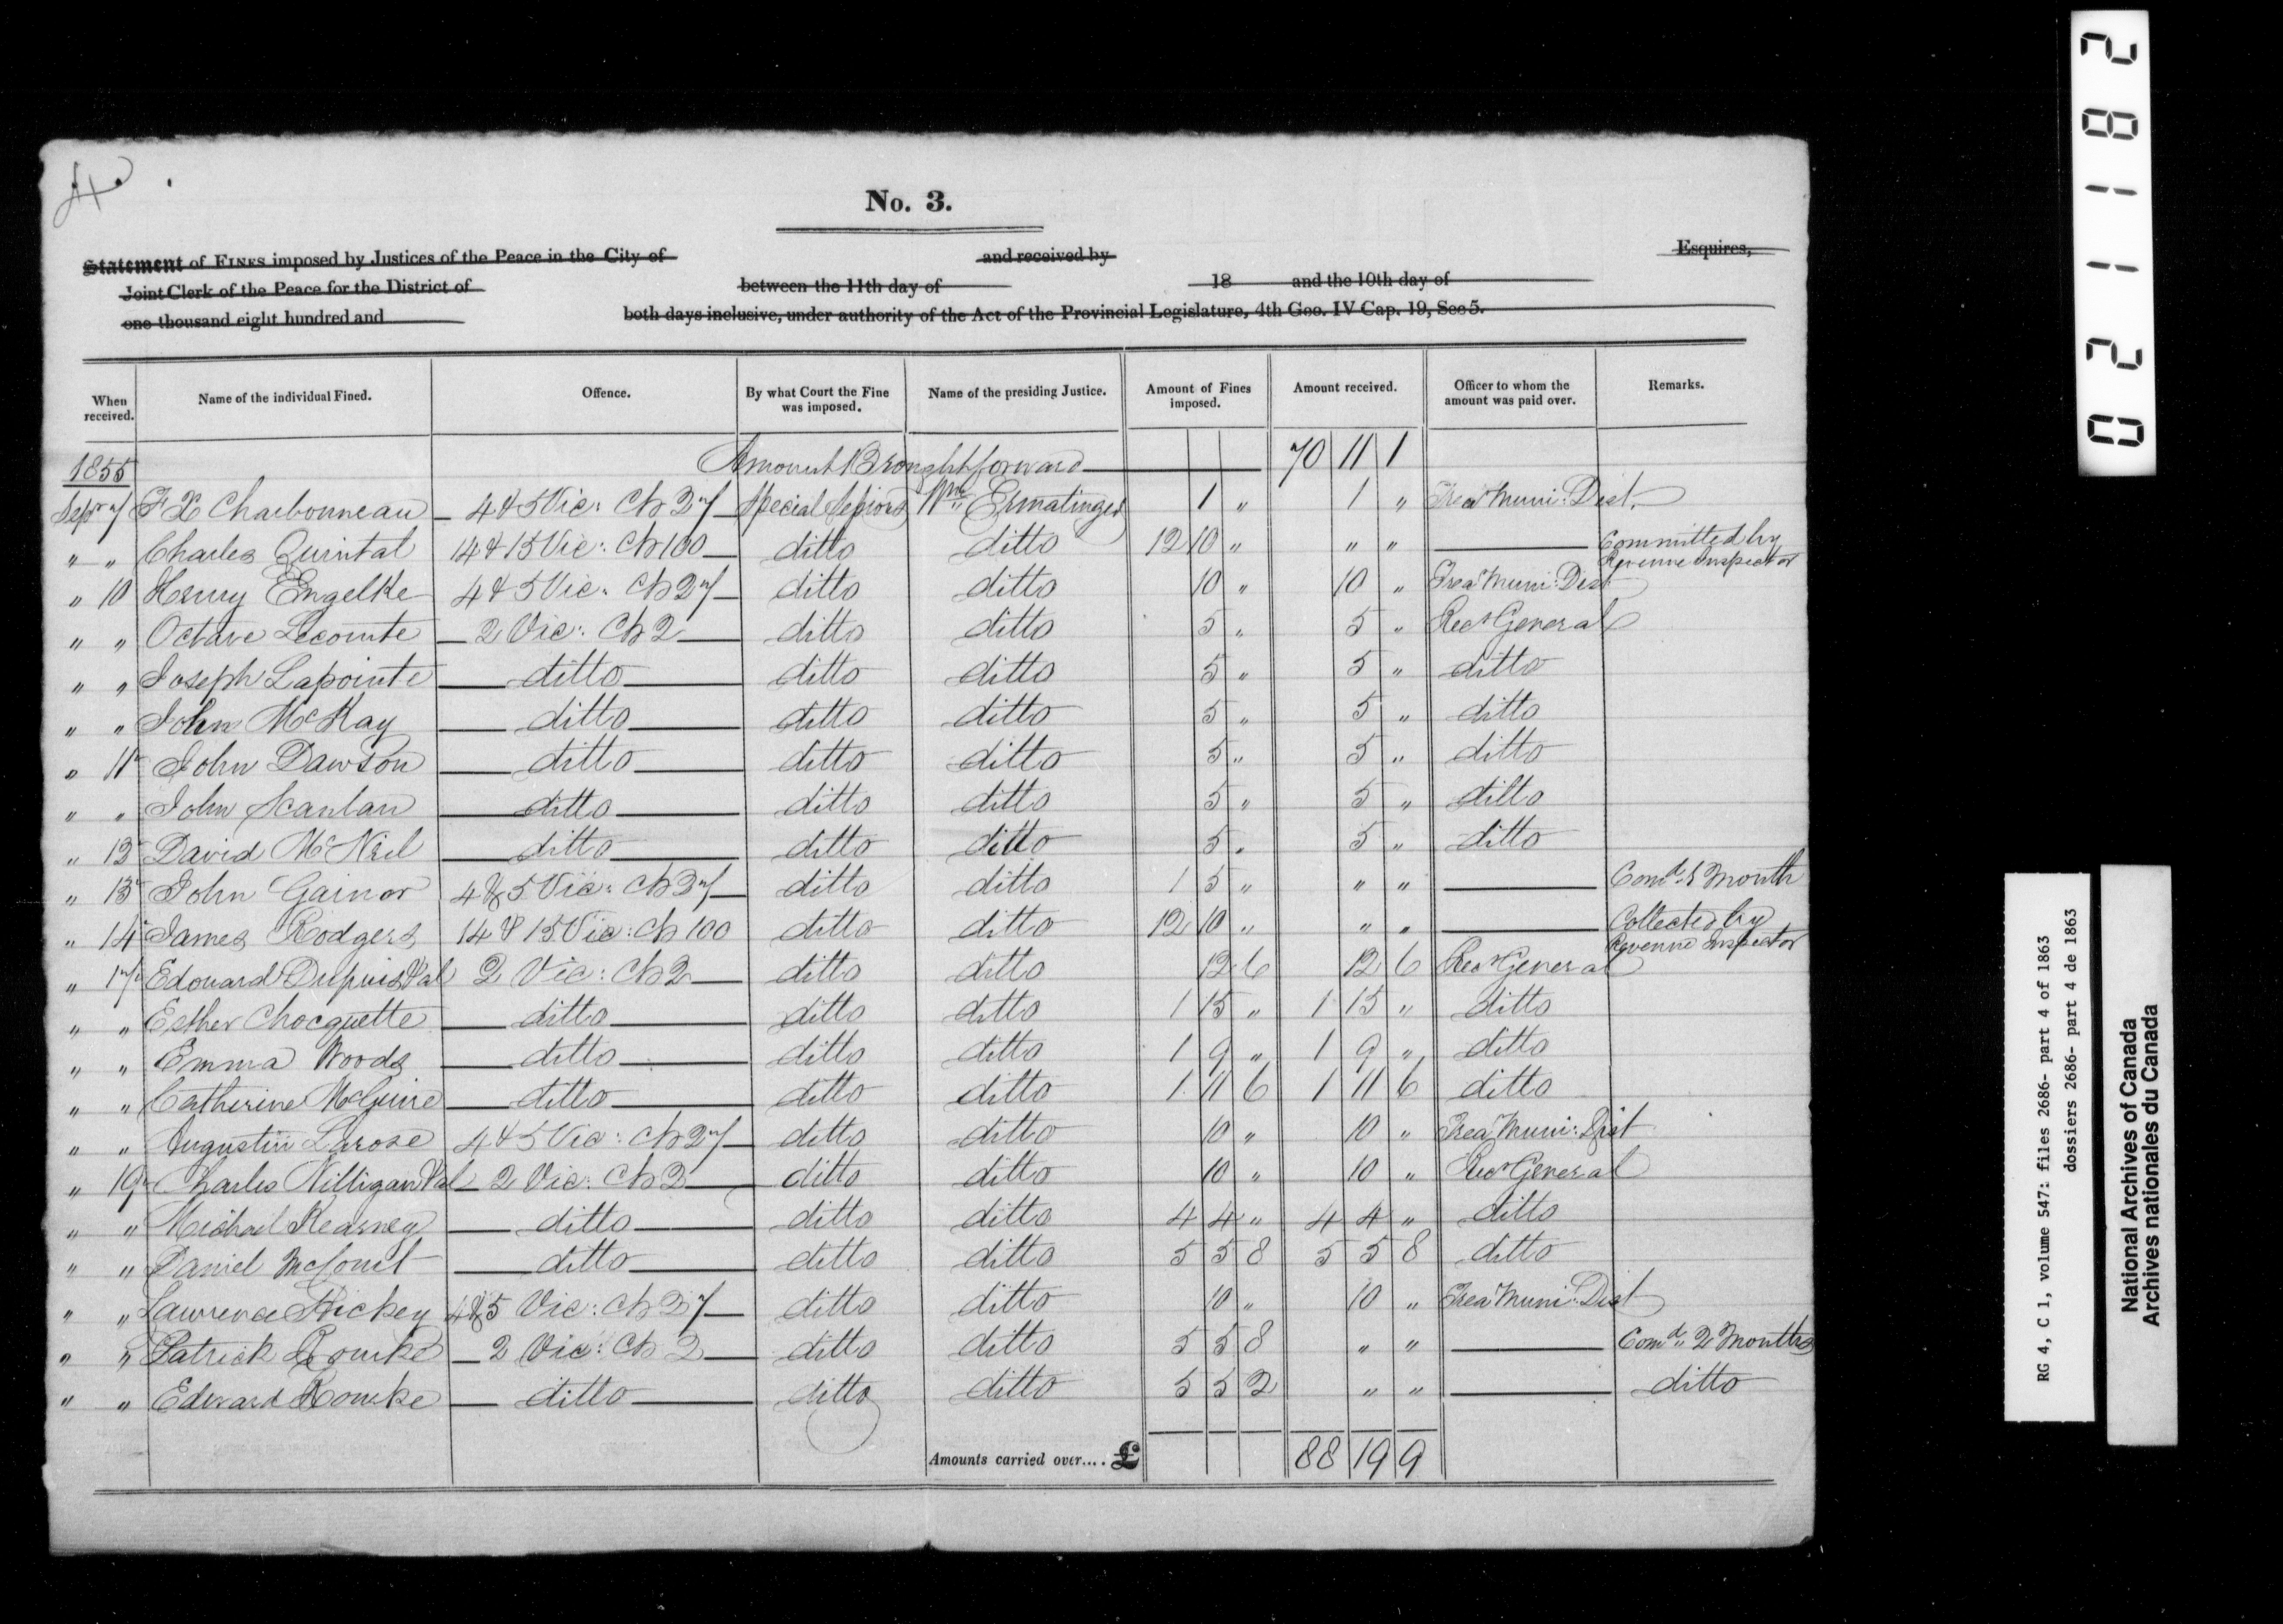 4
No. 3.
Statement of FINES imposed by Justices of the Peace in the City of and received by Esquires,
Joint Clerk of the Peace for the District of between the 11th day of 18 and the 10th day of
one thousand eight hundred and both days inclusive, under authority of the Act of the Provincial Legislature, 4th Geo. IV Cap. 19, Sec 5.
When received. Name of the individual Fined. Offence. By what Court the Fine was imposed. Name of the presiding Justice. Amount of Fines imposed. Amount received. Officer to whom the amount was paid over. Remarks.
1855 Amount Brought forward 70 11 1
Sepr 7 F X Charbonneau 4 & 5 Vic: Ch 27 Special Sessions Wm Ermatinger 1 " 1 " Trea Muni: Dist.
" " Charles Quintal 14 & 15 Vic: Ch 100 ditto ditto 12 10 " " " Committed by Revenue Inspector
" 10 Henry Engelke 4 & 5 Vic: Ch 27 ditto ditto 10 " 10 " Trea Muni: Dist
" " Octave Lecomte 2 Vic: Ch 2 ditto ditto 5 " 5 " Recr General
" " Joseph Lapointe ditto ditto ditto 5 " 5 " ditto
" " John McKay ditto ditto ditto 5 " 5 " ditto
" 11 John Dawson ditto ditto ditto 5 " 5 " ditto
" " John Scanlan ditto ditto ditto 5 " 5 " ditto
" 12 David McNeil ditto ditto ditto 5 " 5 " ditto
" 13 John Gainor 4 & 5 Vic: Ch 27 ditto ditto 1 5 " " " Comd 1 Month
" 14 James Rodgers 14 & 15 Vic: Ch 100 ditto ditto 12 10 " " " Collected by Revenue Inspector
" 17 Edouard Dupuis & al 2 Vic: Ch 2 ditto ditto 12 6 12 6 Recr General
" " Esther Chocquette ditto ditto ditto 1 15 " 1 15 " ditto
" " Emma Woods ditto ditto ditto 1 9 " 1 9 " ditto
" " Catherine McGuire ditto ditto ditto 1 11 6 1 11 6 ditto
" " Augustin Larose 4 & 5 Vic: Ch 27 ditto ditto 10 " 10 " Trea Muni: Dist
" 19 Charles Milligan & al 2 Vic: Ch 2 ditto ditto 10 " 10 " Recr General
" " Michael Kearney ditto ditto ditto 4 4 " 4 4 " ditto
" " Daniel McCourt ditto ditto ditto 5 5 8 5 5 8 ditto
" " Lawrence Hickey 4 & 5 Vic: Ch 27 ditto ditto 10 " 10 " Trea Muni: Dist
" " Patrick Rourke 2 Vic: Ch 2 ditto ditto 5 5 8 " " Comd 2 Months
" " Edward Rourke ditto ditto ditto 5 5 2 " " ditto
Amounts carried over.... £ 88 19 9
021182
RG 4, C 1, volume 547: files 2686- part 4 of 1863
dossiers 2686- part 4 de 1863
National Archives of Canada
Archives nationales du Canada